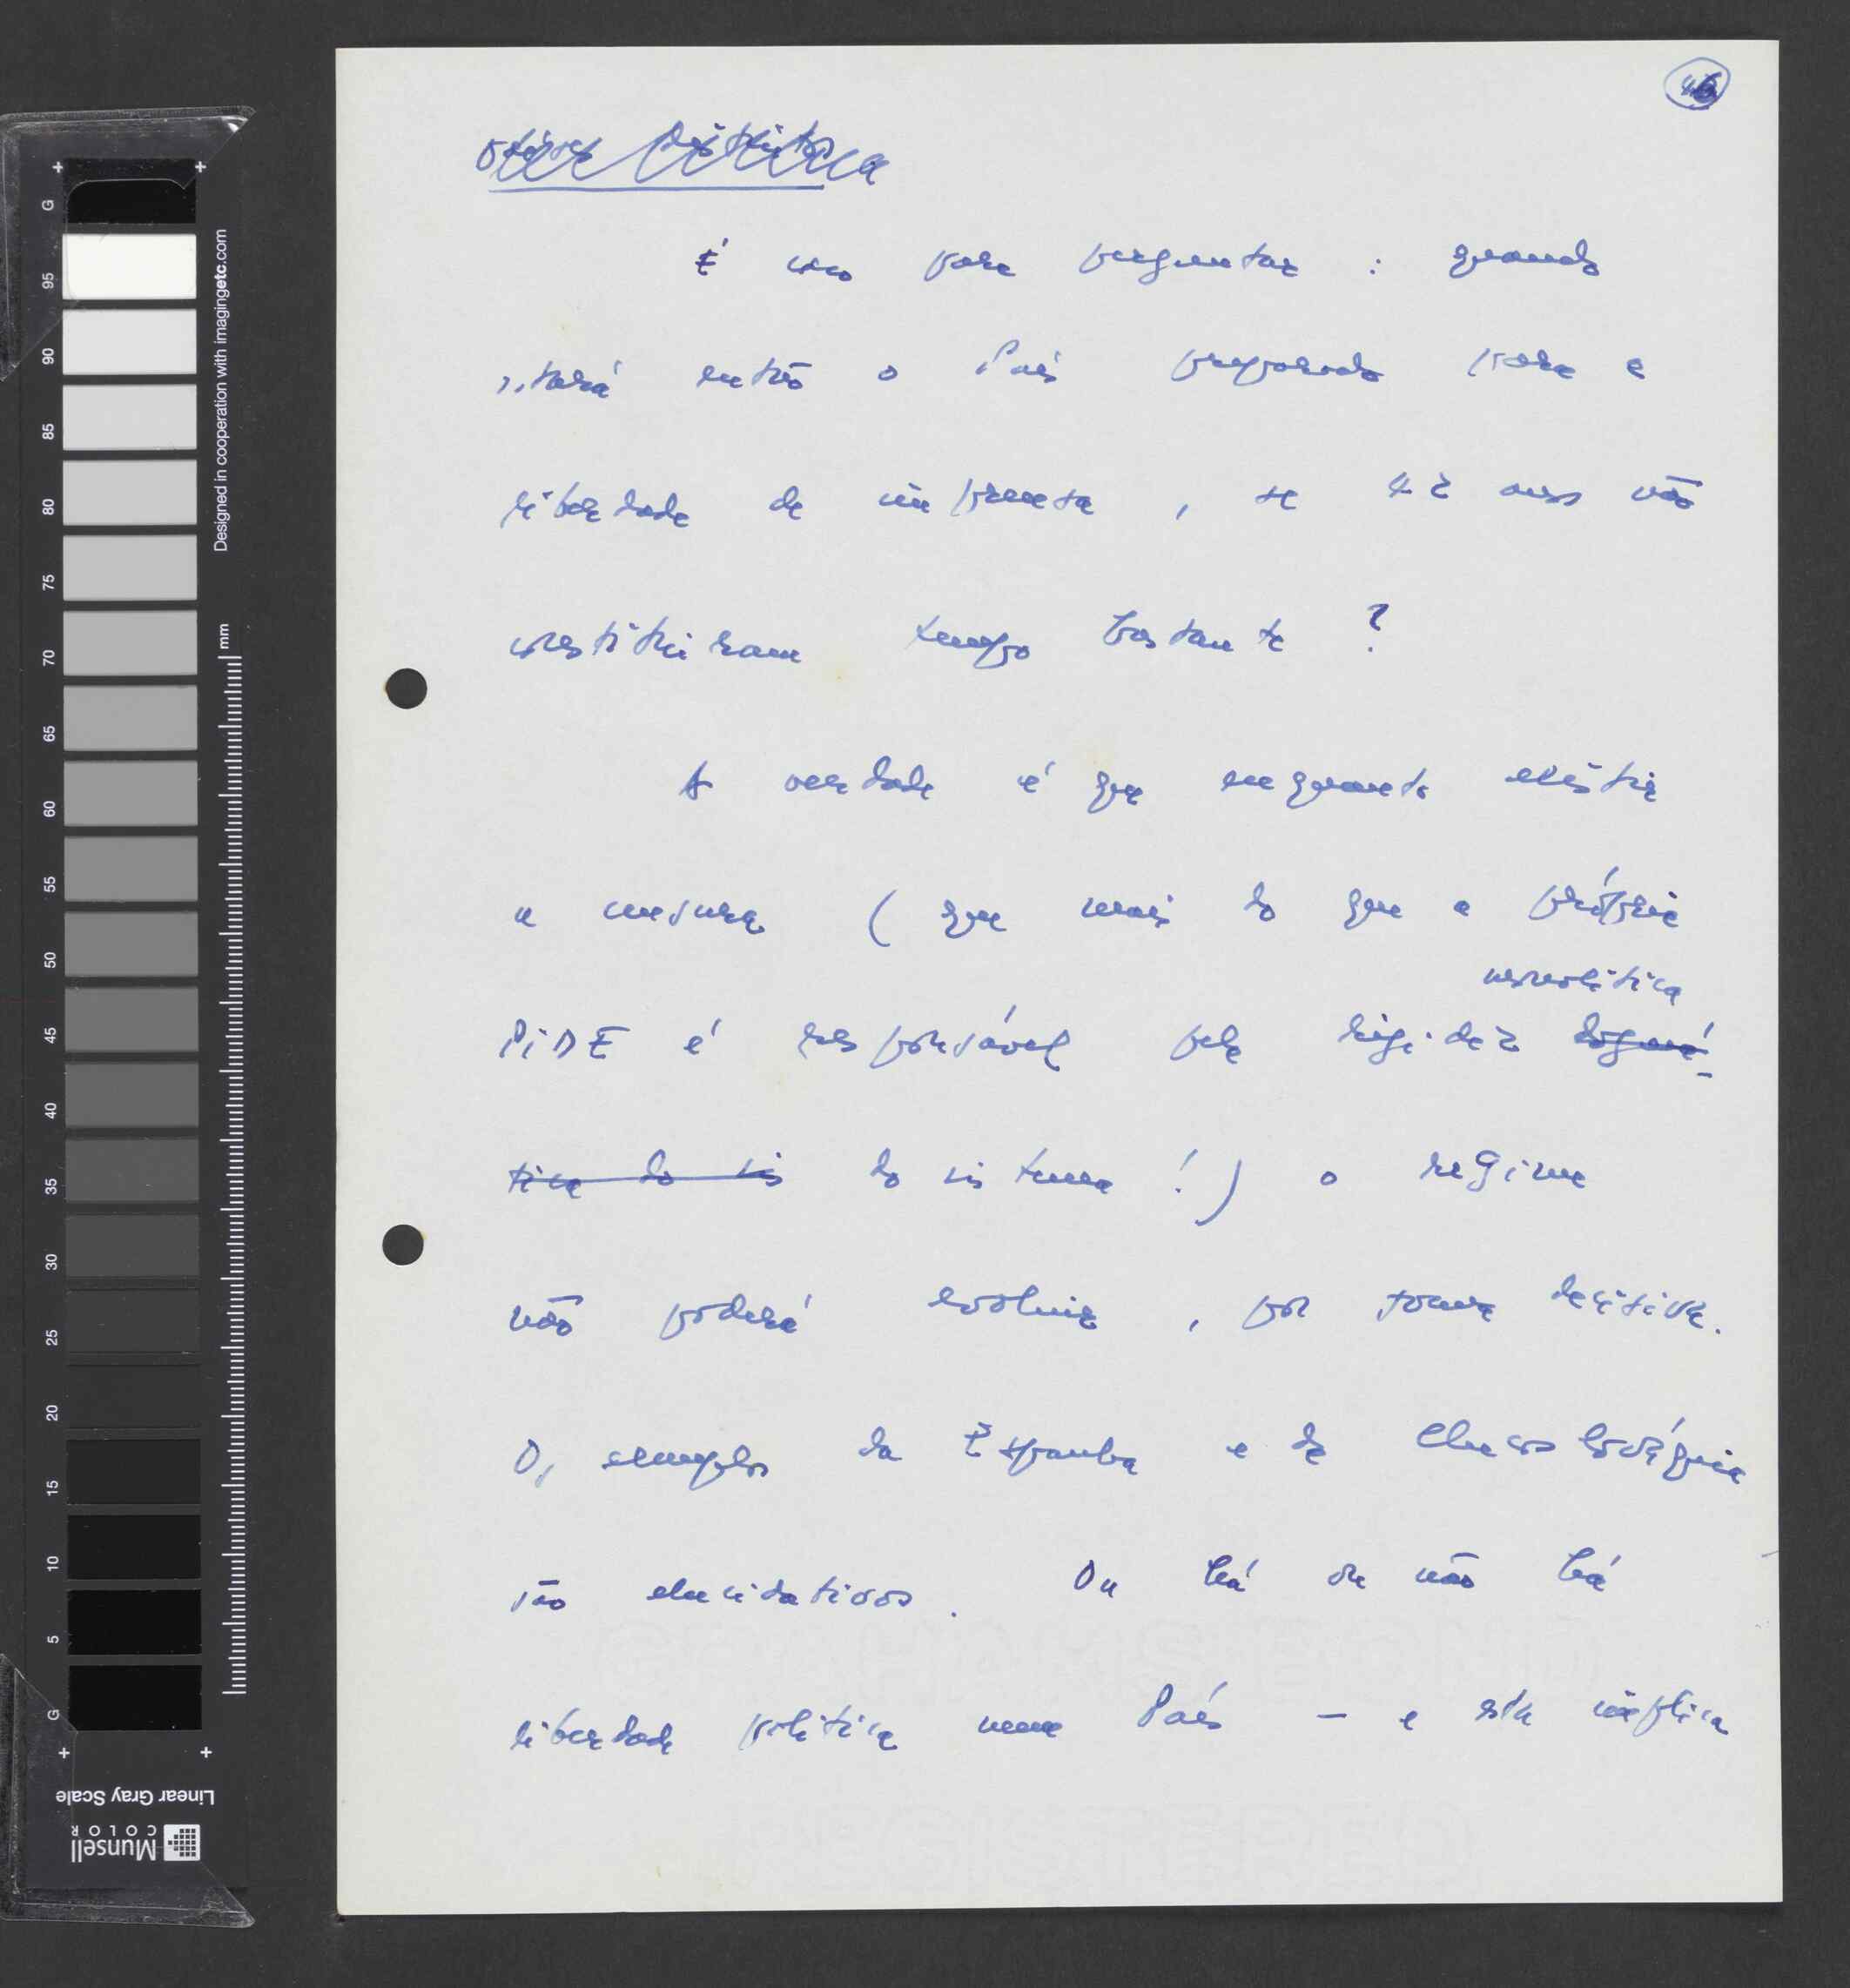 É caso para perguntar : quando
estará então o País preparado para a
liberdade de imprensa , se 42 anos não
constituiram tempo bastante ?
A verdade é que enquanto existir
a censura ( que mais do que a própria
neolítica
PIDE é responsável pela rigidez dogmá-
tica do sis do sistema ! ) o regime
não poderá evoluir , por forma decisiva.
Os exemplos da Espanha e da Checoslováquia
são elucidativos . Ou há ou não há
liberdade política num País – e esta implica
Designed in cooperation with imagingetc.com
mm
G
95
90
85
80
75
70
65
60
55
50
45
40
35
30
25
20
15
10
5
G
Linear Gray Scale
Munsell
COLOR